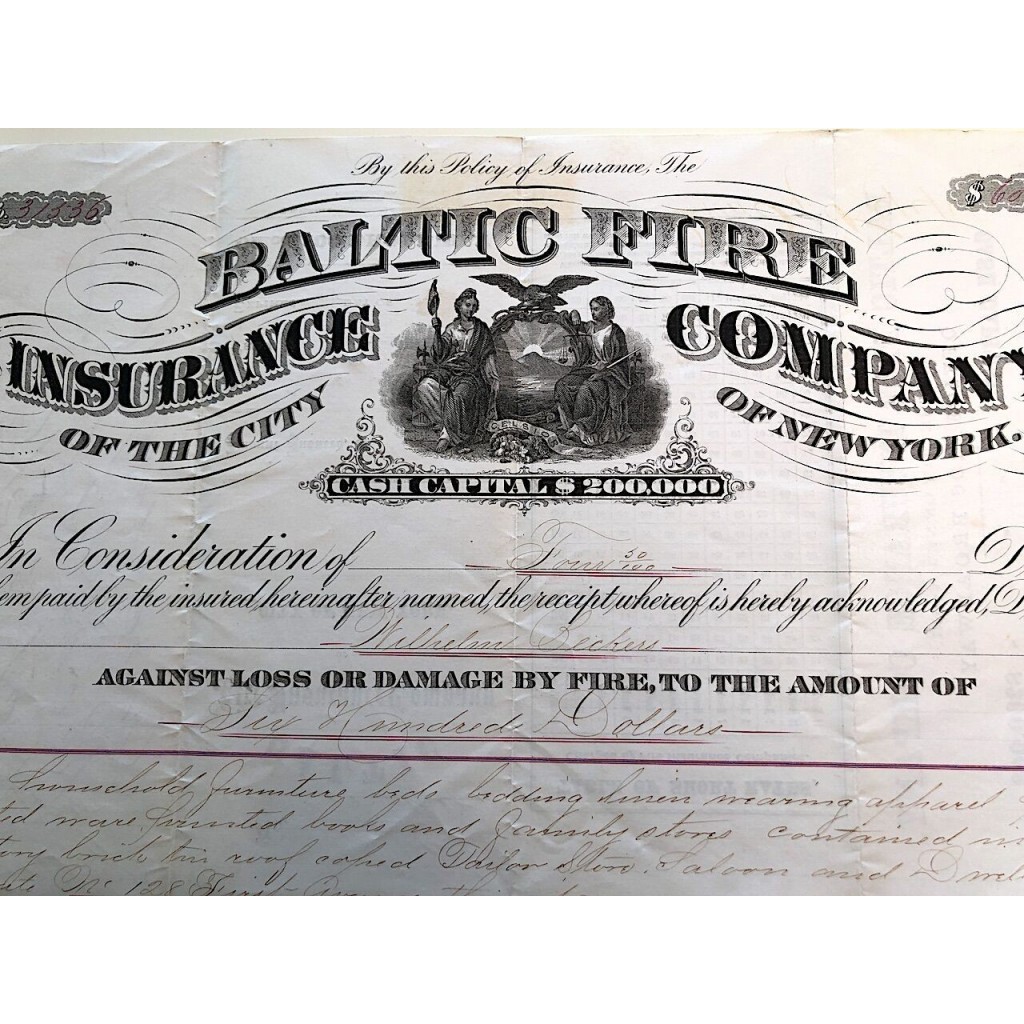 By this Policy of Insurance, The
32336 $ 60
BALTIC FIRE
INSURANCE COMPANY
OF THE CITY OF NEW YORK.
CELSIOR
CASH CAPITAL $ 200,000
In Consideration of Four 50/100 D
em paid by the insured, hereinafter named, the receipt whereof is hereby acknowledged, D
Wilhelm Deckers
AGAINST LOSS OR DAMAGE BY FIRE, TO THE AMOUNT OF
Six Hundred Dollars
household furniture beds bedding linen wearing apparel
ted ware printed books and family stores contained in
tory brick tin roof coped Tailor Store Saloon and Dwel
ate No 128 First